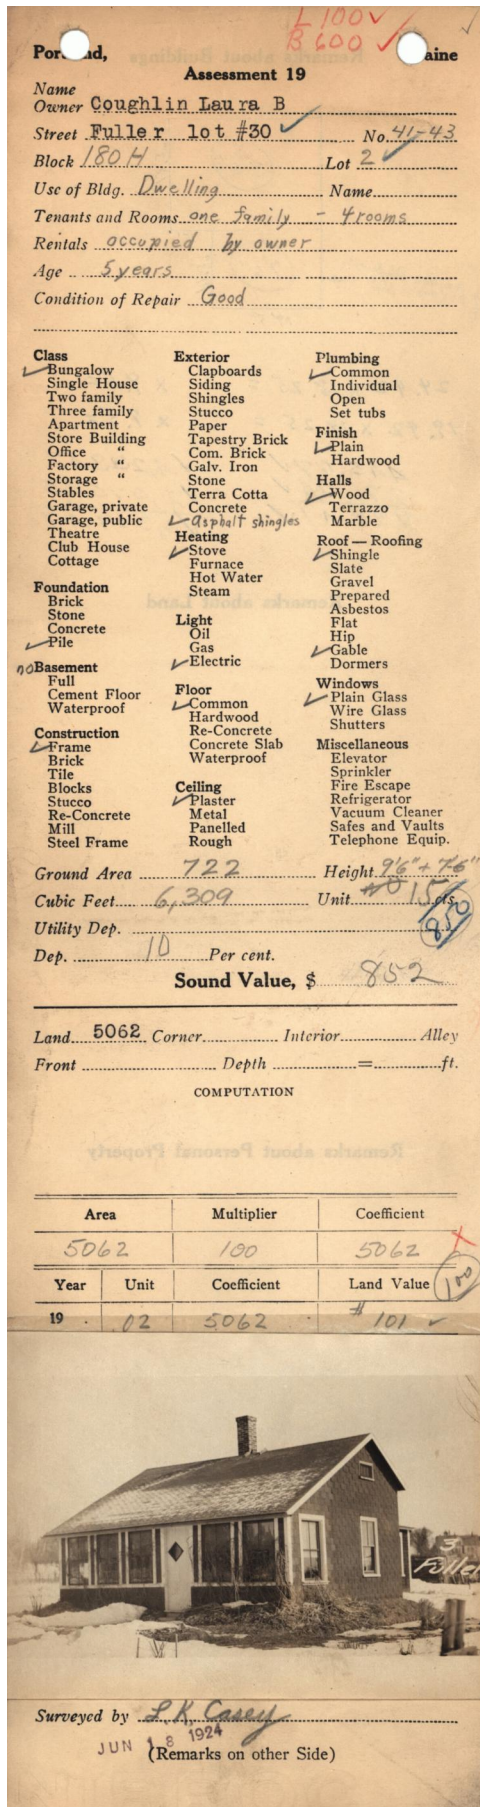 L 100 ✓
B 600 ✓
Portland, Maine
Assessment 19
Name
Owner Coughlin Laura B
Street Fuller lot #30 ✓ No. 41-43
Block 180 H Lot 2 ✓
Use of Bldg. Dwelling Name
Tenants and Rooms one family - 4 rooms
Rentals occupied by owner
Age 5 years
Condition of Repair Good
Class
✓ Bungalow
Single House
Two family
Three family
Apartment
Store Building
Office "
Factory "
Storage "
Stables
Garage, private
Garage, public
Theatre
Club House
Cottage
Foundation
Brick
Stone
Concrete
✓ Pile
no Basement
Full
Cement Floor
Waterproof
Construction
✓ Frame
Brick
Tile
Blocks
Stucco
Re-Concrete
Mill
Steel Frame
Exterior
Clapboards
Siding
Shingles
Stucco
Paper
Tapestry Brick
Com. Brick
Galv. Iron
Stone
Terra Cotta
Concrete
✓ Asphalt shingles
Heating
✓ Stove
Furnace
Hot Water
Steam
Light
Oil
Gas
✓ Electric
Floor
✓ Common
Hardwood
Re-Concrete
Concrete Slab
Waterproof
Ceiling
✓ Plaster
Metal
Panelled
Rough
Plumbing
✓ Common
Individual
Open
Set tubs
Finish
✓ Plain
Hardwood
Halls
✓ Wood
Terrazzo
Marble
Roof — Roofing
✓ Shingle
Slate
Gravel
Prepared
Asbestos
Flat
Hip
✓ Gable
Dormers
Windows
✓ Plain Glass
Wire Glass
Shutters
Miscellaneous
Elevator
Sprinkler
Fire Escape
Refrigerator
Vacuum Cleaner
Safes and Vaults
Telephone Equip.
Ground Area 722 Height 9'6" + 7'6"
Cubic Feet 6,309 Unit 15 cts.
850
Utility Dep.
Dep. 10 Per cent.
Sound Value, $ 852
Land 5062 Corner Interior Alley
Front Depth = ft.
COMPUTATION
Remarks about Personal Property
Area Multiplier Coefficient
5062 100 5062
Year Unit Coefficient Land Value 100
19 . 02 5062 # 101 ✓
3
Fuller
Surveyed by L. K. Casey
JUN 18 1924
(Remarks on other Side)